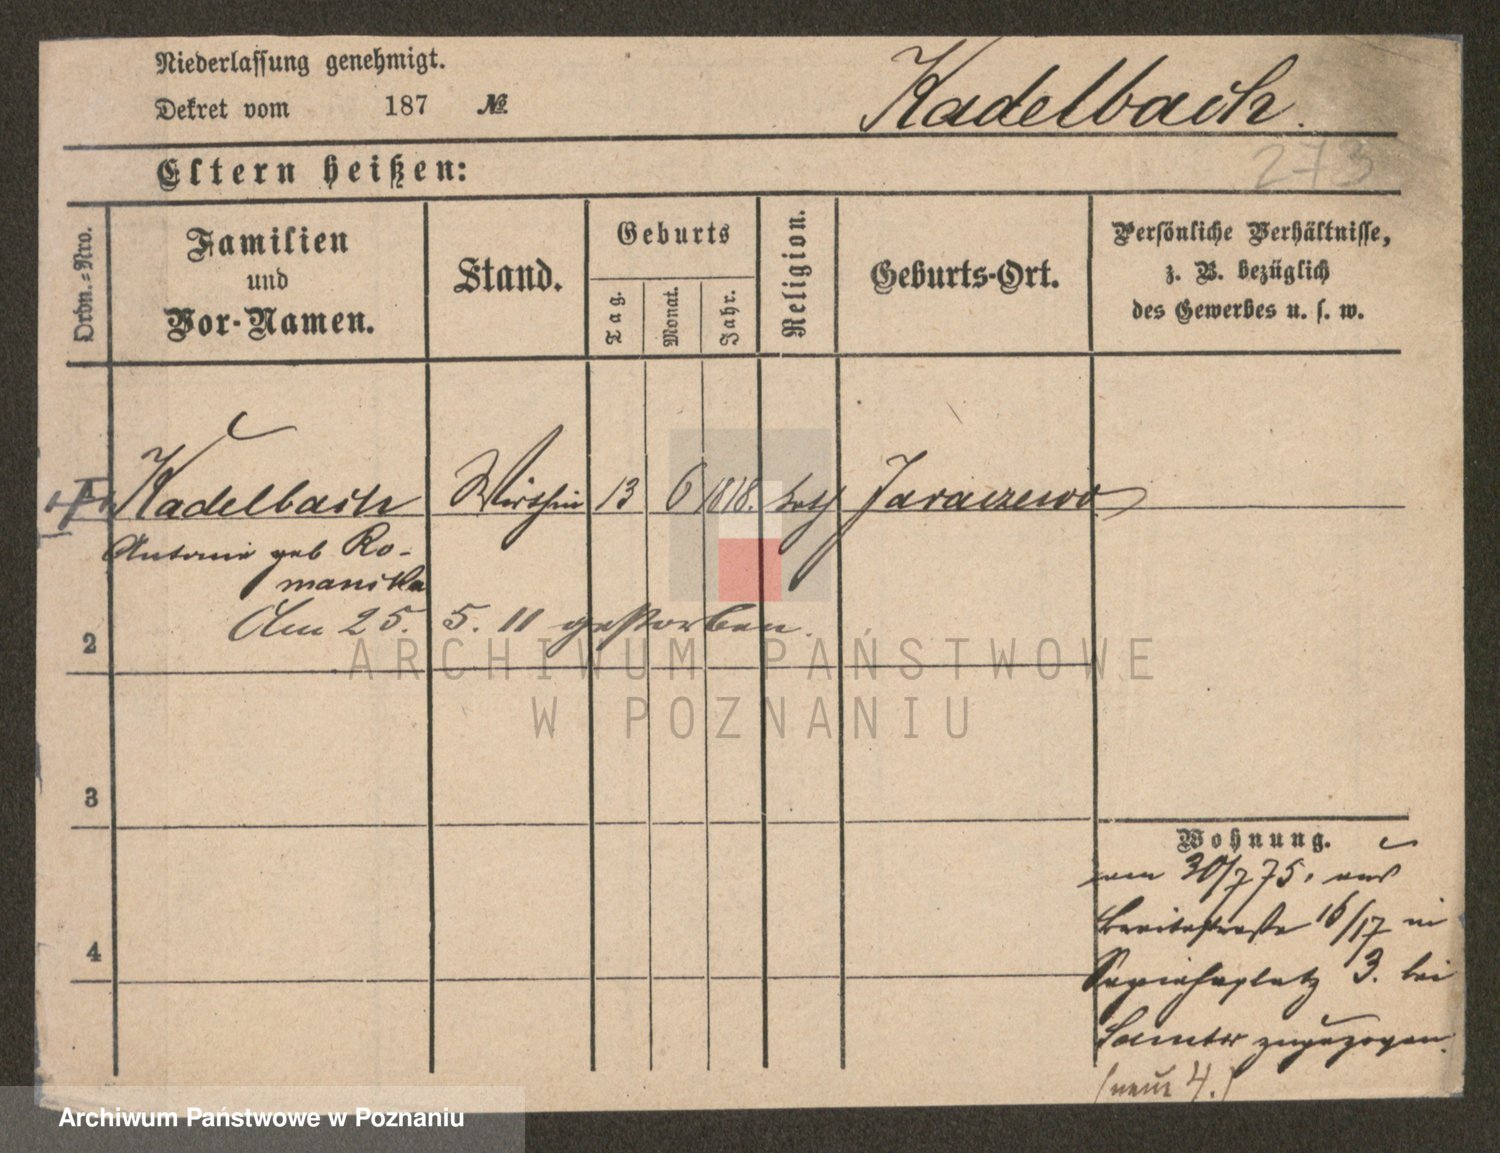 Niederlassung genehmigt.
Dekret vom 187 №
Kadelbach.
273
Eltern heißen:
Ordn.-Nro.
Familien
und
Vor-Namen.
Stand.
Geburts
Tag.
Monat.
Jahr.
Religion.
Geburts-Ort.
Persönliche Verhältnisse,
z. B. bezüglich
des Gewerbes u. s. w.
Kadelbach Wirthin 13 6 1818. kath Jaraczewo
Antonie geb Ro-
manska
Am 25. 5. 11 gestorben.
2
3
4
Wohnung.
am 30/7 75. aus
Breitestraße 16/17 in
Sapiehaplatz 3. bei
Samter zugezogen.
(neue 4.)
ARCHIWUM PAŃSTWOWE
W POZNANIU
Archiwum Państwowe w Poznaniu